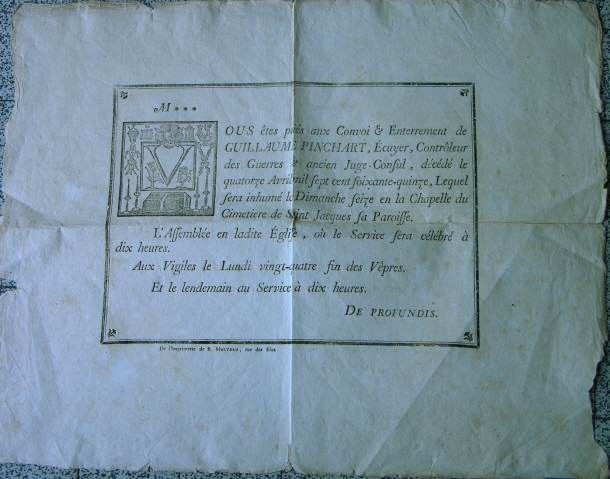 M * * *
VOUS êtes priés aux Convoi & Enterrement de
GUILLAUME PINCHART, Écuyer, Contrôleur
des Guerres & ancien Juge-Consul, décédé le
quatorze Avril mil sept cent soixante-quinze, Lequel
sera inhumé le Dimanche seize en la Chapelle du
Cimetiere de Saint Jacques sa Paroisse.
L'Assemblée en ladite Église, où le Service sera célébré à
dix heures.
Aux Vigiles le Lundi vingt-quatre fin des Vêpres.
Et le lendemain au Service à dix heures.
DE PROFUNDIS.
De l'Imprimerie de B. , rue des